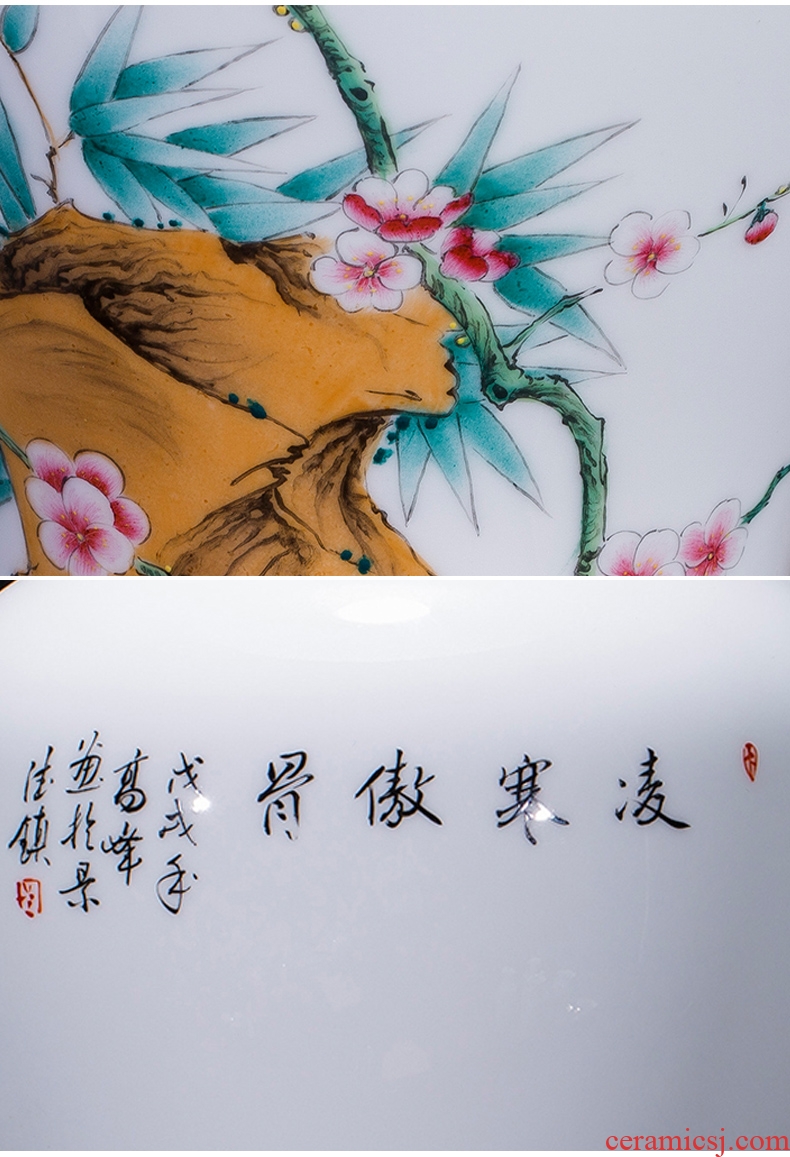 凌寒傲骨
戊戌年
高峰
画於景
德镇
ceramicsj.com